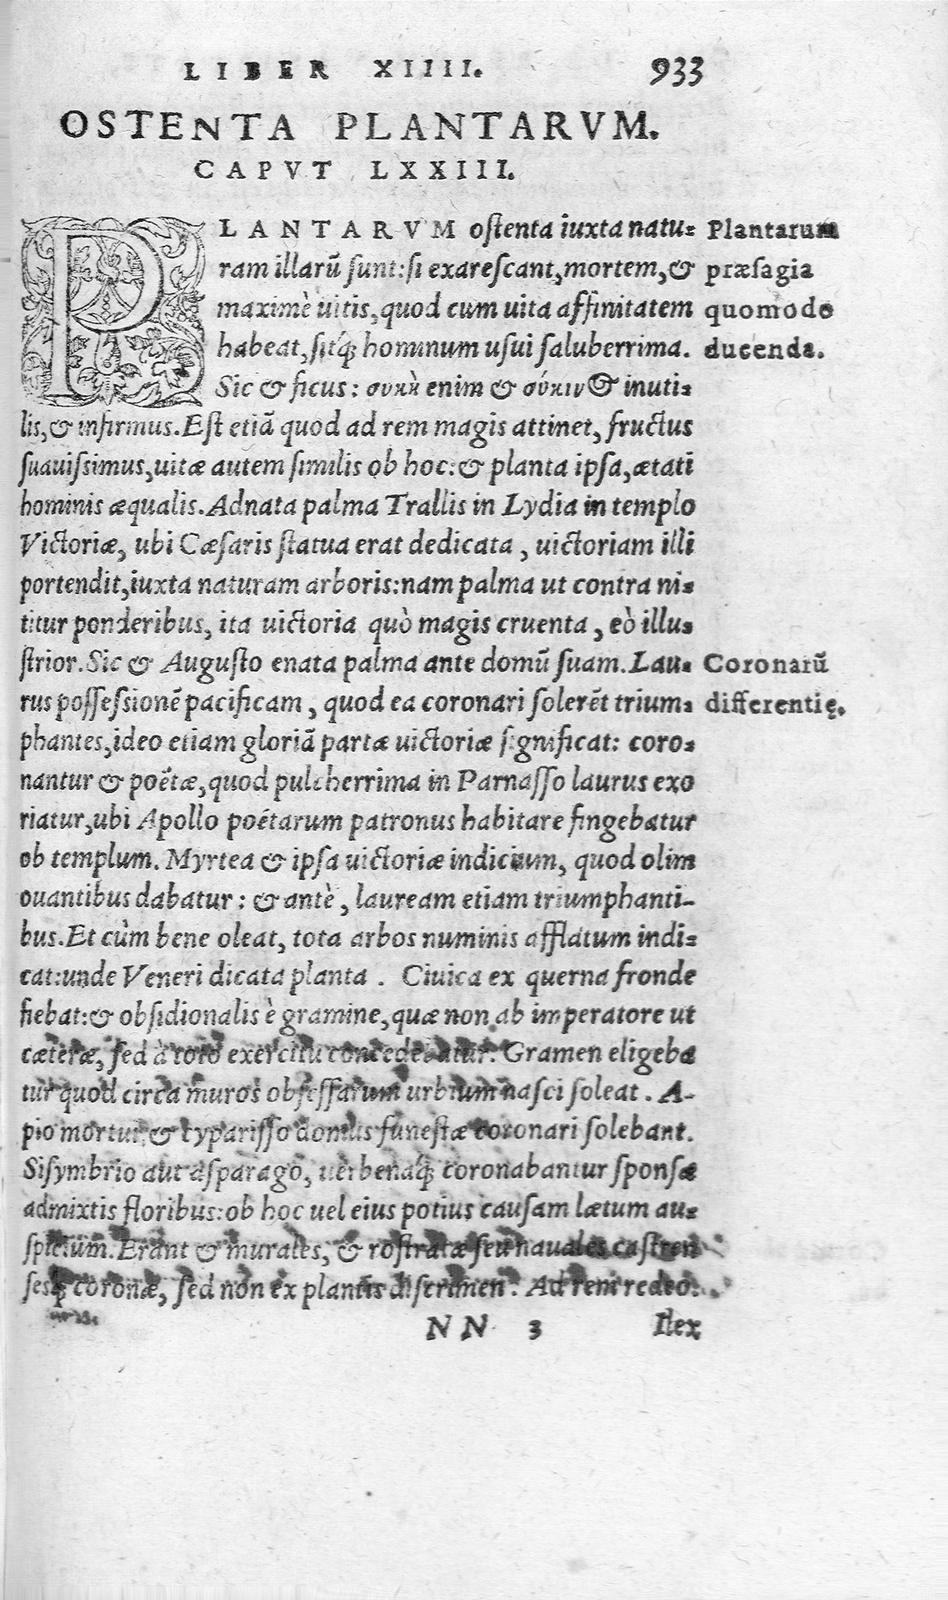 LIBER XIIII. 933
OSTENTA PLANTARVM.
CAPVT LXXIII.
PLANTARVM ostenta iuxta natu-
ram illarũ sunt: si exarescant, mortem, &
maximè uitis, quod cum uita affinitatem
habeat, sitq́; hominum usui saluberrima.
Sic & ficus: συκῆ enim & σύκινος inuti-
lis, & infirmus. Est etiã quod ad rem magis attinet, fructus
suauissimus, uitæ autem similis ob hoc: & planta ipsa, ætati
hominis æqualis. Adnata palma Trallis in Lydia in templo
Victoriæ, ubi Cæsaris statua erat dedicata, uictoriam illi
portendit, iuxta naturam arboris: nam palma ut contra ni-
titur ponderibus, ita uictoria quò magis cruenta, eò illu-
strior. Sic & Augusto enata palma ante domũ suam. Lau-
rus possessionẽ pacificam, quod ea coronari solerẽt trium-
phantes, ideo etiam gloriã partæ uictoriæ significat: coro-
nantur & poëtæ, quod pulcherrima in Parnasso laurus exo
riatur, ubi Apollo poëtarum patronus habitare fingebatur
ob templum. Myrtea & ipsa uictoriæ indicium, quod olim
ouantibus dabatur: & antè, lauream etiam triumphanti-
bus. Et cùm bene oleat, tota arbos numinis afflatum indi-
cat: unde Veneri dicata planta. Ciuica ex querna fronde
fiebat: & obsidionalis è gramine, quæ non ab imperatore ut
cæteræ, sed à toto exercitu concedebatur. Gramen eligeba
tur quod circa muros obsessarum urbium nasci soleat. A-
pio mortui, & cyparisso domus funestæ coronari solebant.
Sisymbrio aut asparago, uerbenaq́; coronabantur sponsæ
admixtis floribus: ob hoc uel eius potius causam lætum au-
spicium. Erant & murales, & rostratæ seu nauales castren
sesq́; coronæ, sed non ex plantis discrimen. Ad rem redeo.
NN 3 Ilex
Plantarum
præsagia
quomodo
ducenda.
Coronarũ
differentię.